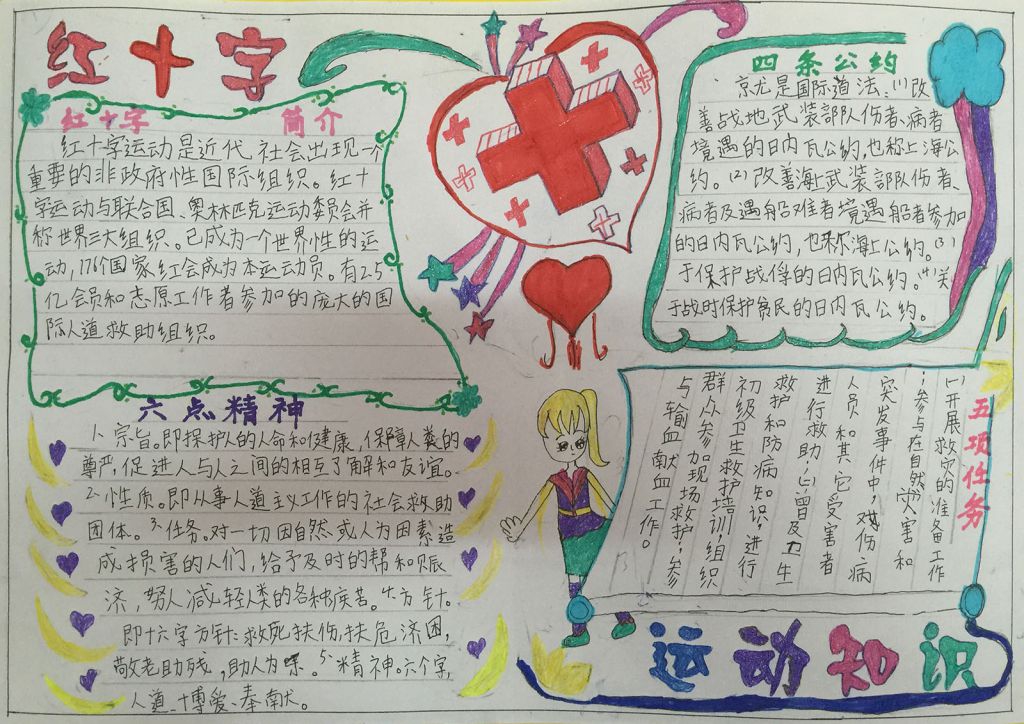 红十字
红十字 简介
红十字运动是近代社会出现一个
重要的非政府性国际组织。红十
字运动与联合国、奥林匹克运动委员会并
称世界三大组织。已成为一个世界性的运
动,176个国家红会成为本运动员。有2.5
亿会员和志愿工作者参加的庞大的国
际人道救助组织。
六点精神
1、宗旨。即保护人的人命和健康,保障人类的
尊严,促进人与人之间的相互了解和友谊。
2、性质。即从事人道主义工作的社会救助
团体。3、任务。对一切因自然或人为因素造
成损害的人们,给予及时的帮和赈
济,努人减轻人类的各种疾苦。4、方针。
即十六字方针:救死扶伤,扶危济困,
敬老助残,助人为乐。5、精神。六个字,
人道、博爱、奉献。
四条公约
京尤是国际道法:(1)改
善战地武装部队伤者、病者
境遇的日内瓦公约,也称上海公
约。(2)改善海上武装部队伤者、
病者及遇船难者境遇船者参加
的日内瓦公约,也称尔海上公约。(3)
于保护战俘的日内瓦公约。(4)关
于战时保护贫民的日内瓦公约。
五项任务
(1)开展救灾的准备工作
;参与在自然灾害和
突发事件中,对伤病
人员和其它受害者
进行救助;(2)普及卫生
救护和防病知识;进行
初级卫生救护培训,组织
群众参加现场救护;参
与输血献血工作。
运动知识